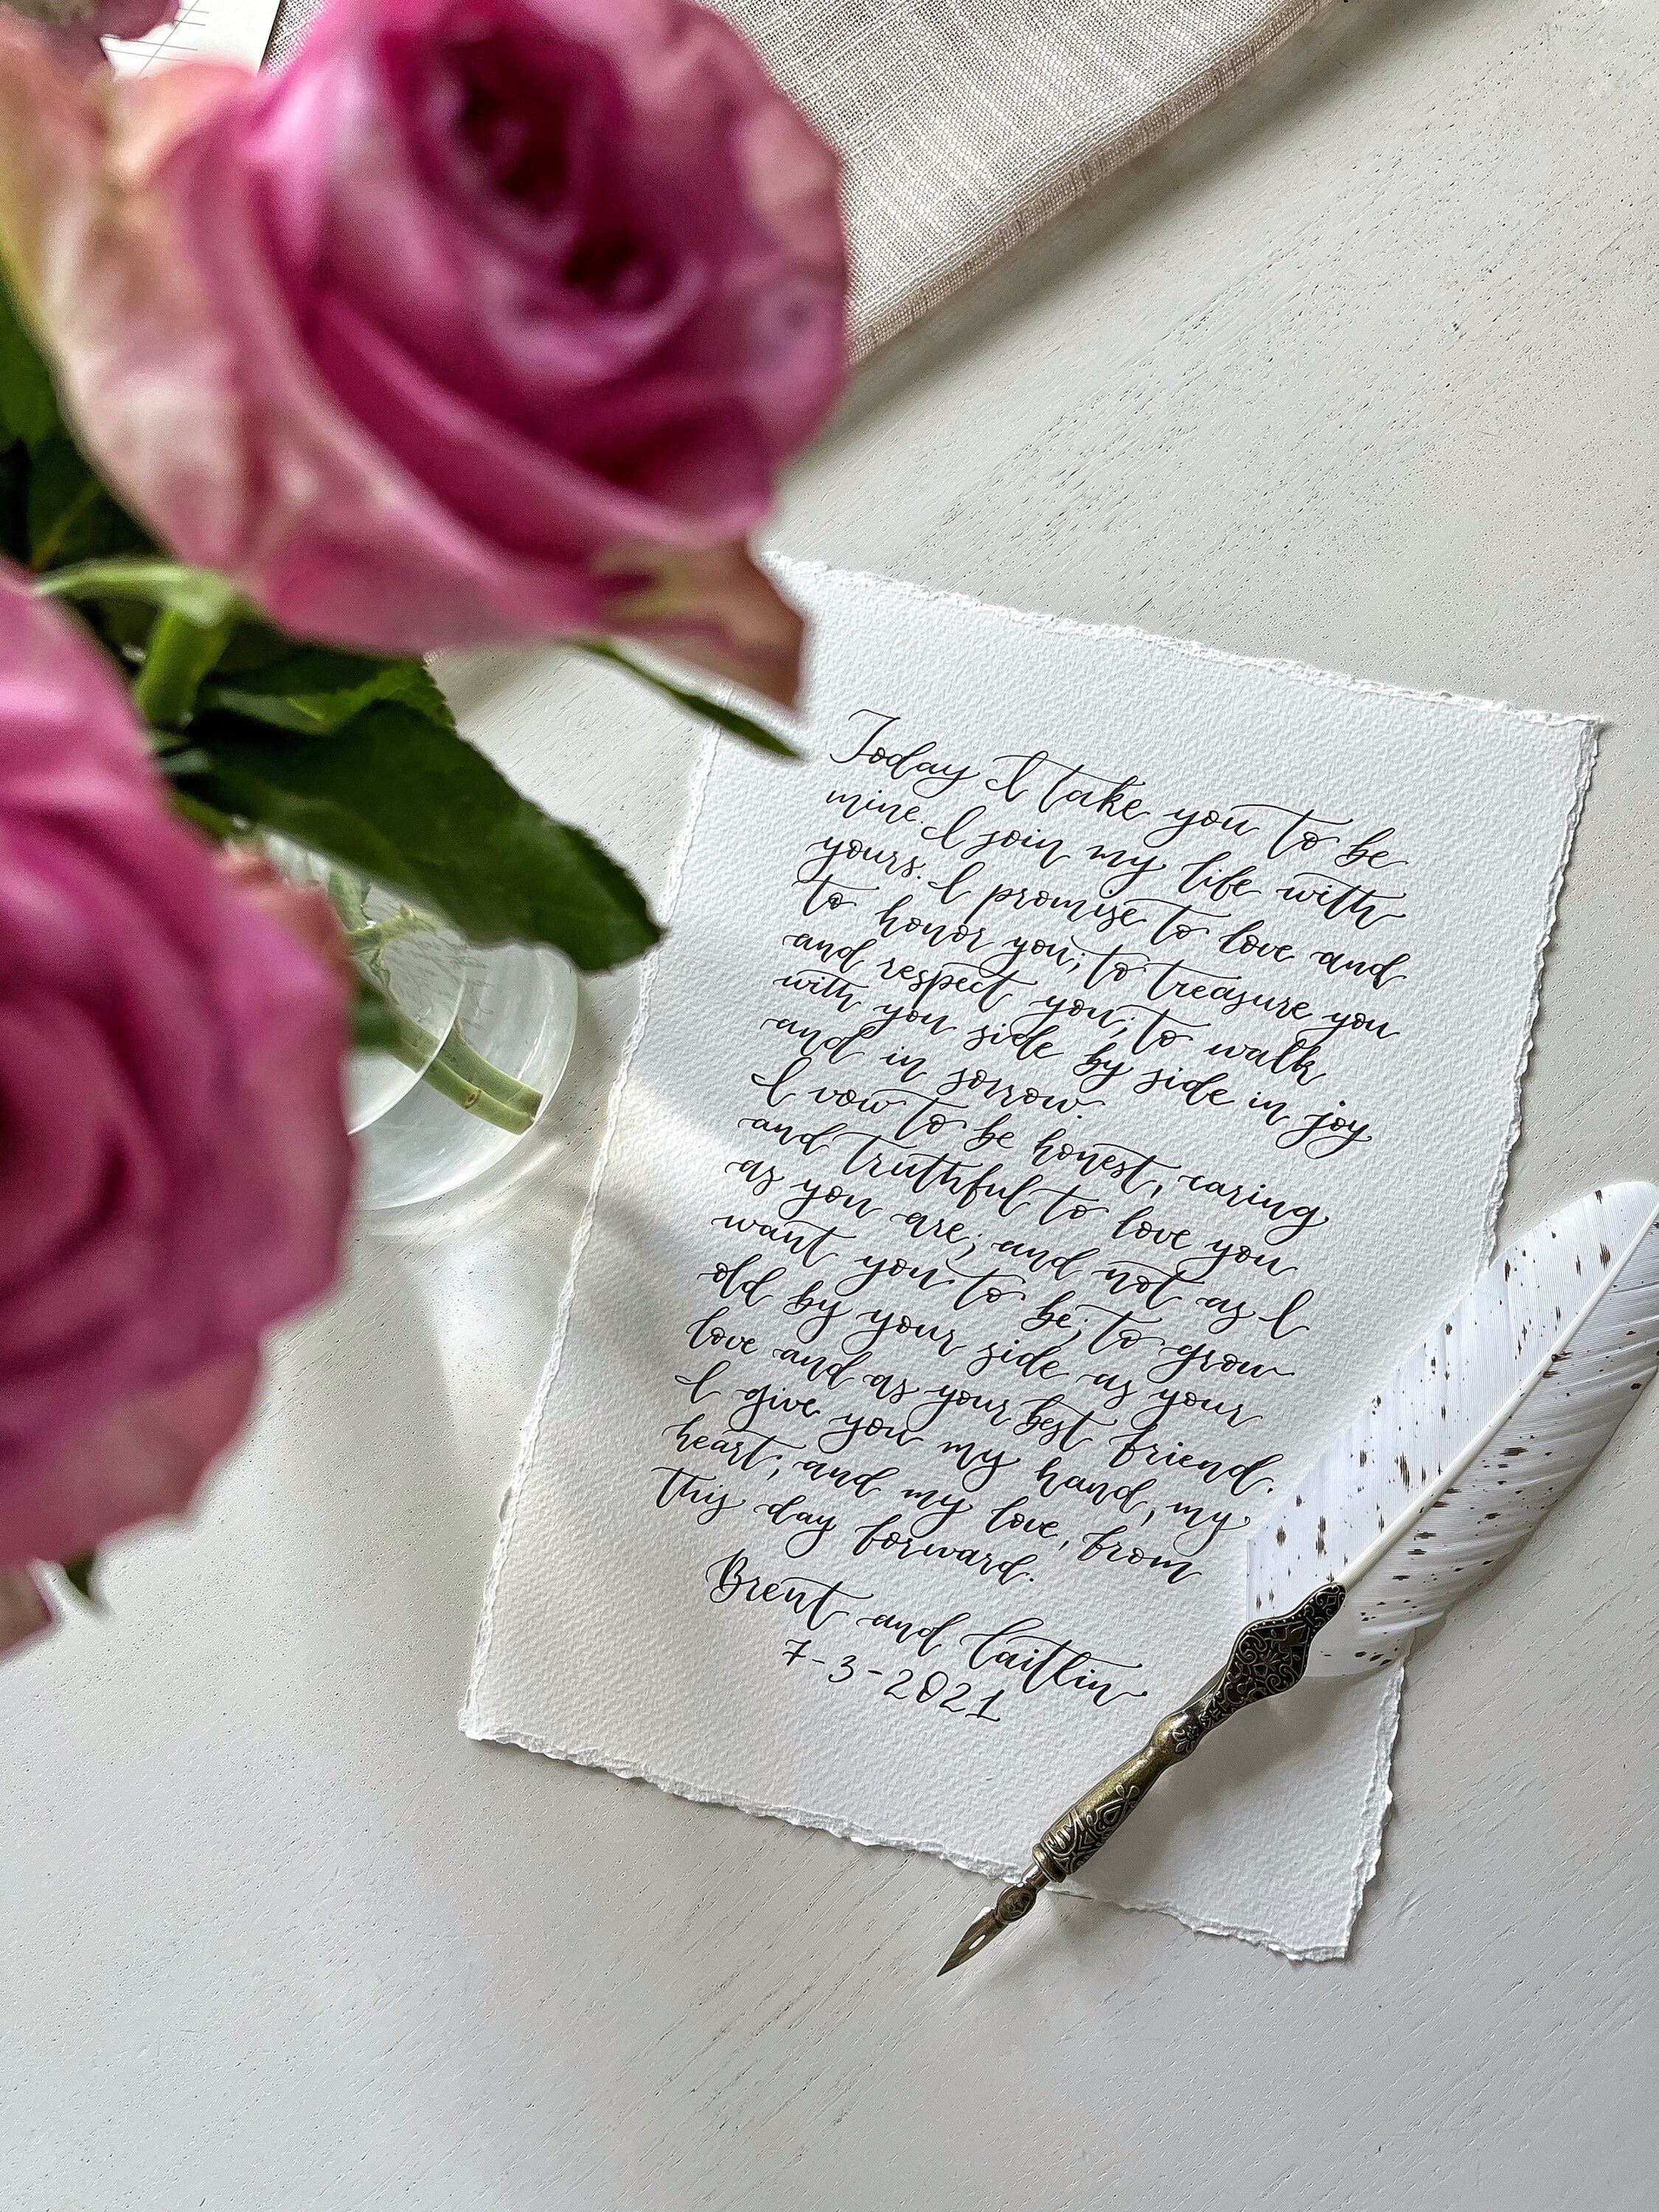 Today I take you to be
mine. I join my life with
yours. I promise to love and
to honor you; to treasure you
and respect you; to walk
with you side by side in joy
and in sorrow.
I vow to be honest, caring
and truthful to love you
as you are; and not as I
want you to be; to grow
old by your side as your
love and as your best friend.
I give you my hand, my
heart; and my love, from
this day forward.
Brent and Caitlin
7-3-2021